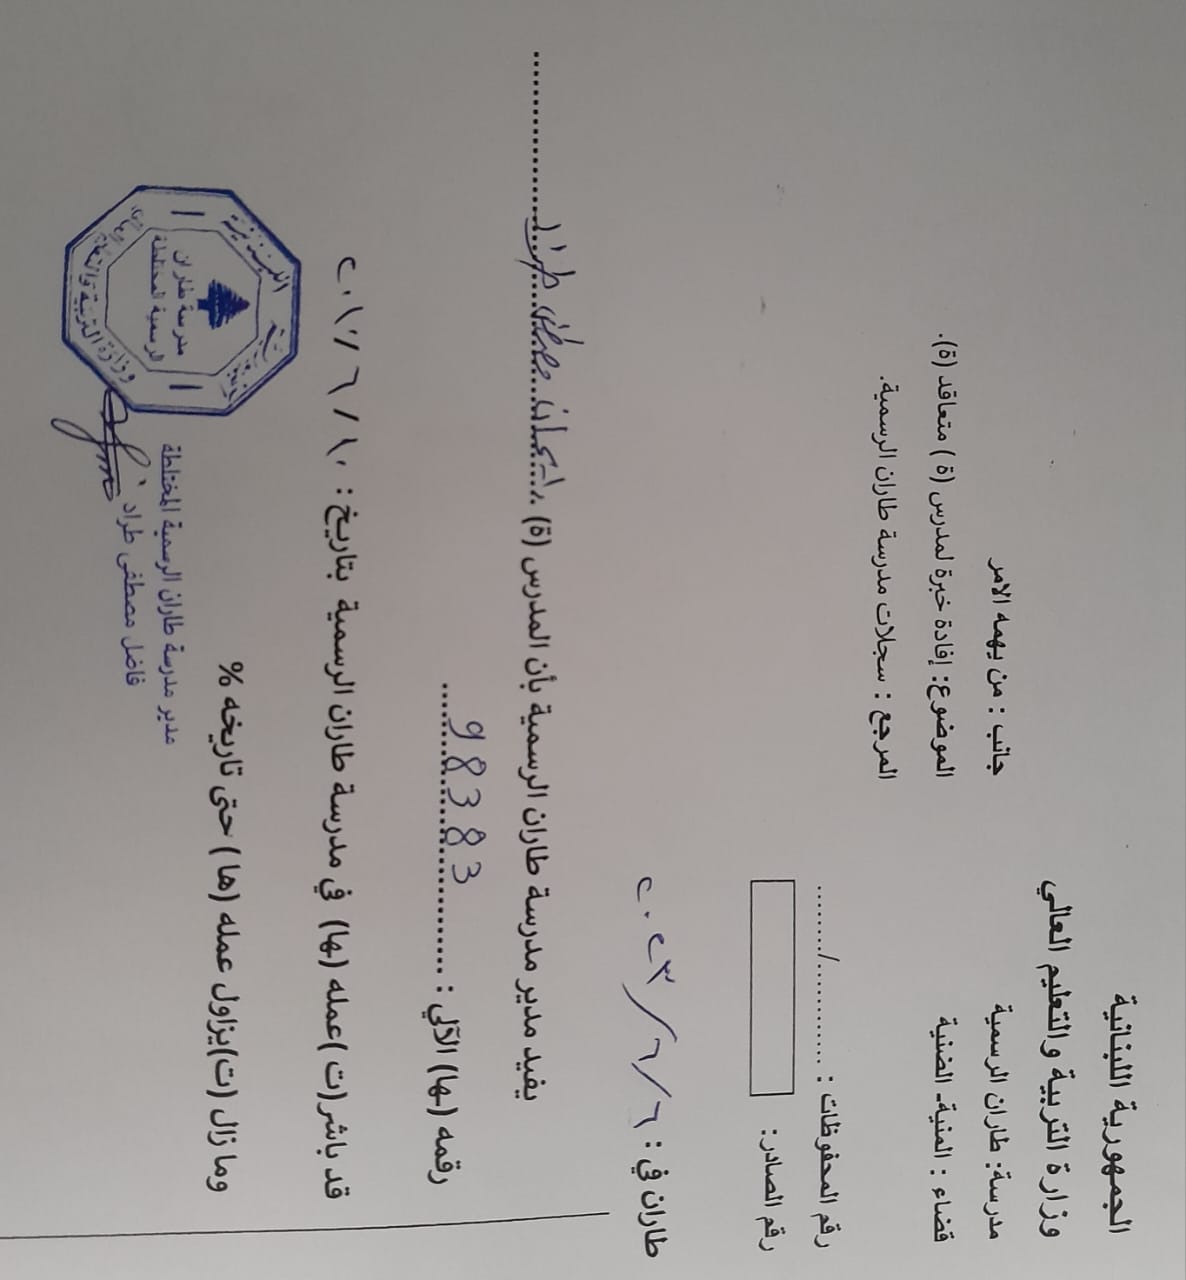 الجمهورية اللبنانية
وزارة التربية والتعليم العالي
مدرسة: طاران الرسمية
قضاء : المنية- الضنية
جانب : من يهمه الامر
الموضوع: إفادة خبرة لمدرس (ة ) متعاقد (ة).
المرجع : سجلات مدرسة طاران الرسمية.
رقم المحفوظات : ............/.........
رقم الصادر:
طاران في : ٦/٦/٢٠٢٣
يفيد مدير مدرسة طاران الرسمية بأن المدرس (ة)
رقمه (ها) الآلي : 98383
قد باشر(ت )عمله (ها) في مدرسة طاران الرسمية بتاريخ:
وما زال (ت)يزاول عمله (ها ) حتى تاريخه %
مدير مدرسة طاران الرسمية المختلطة
فاضل مصطفى طراد
الجمهورية اللبنانية
وزارة التربية والتعليم العالي
مدرسة طاران
الرسمية المختلطة